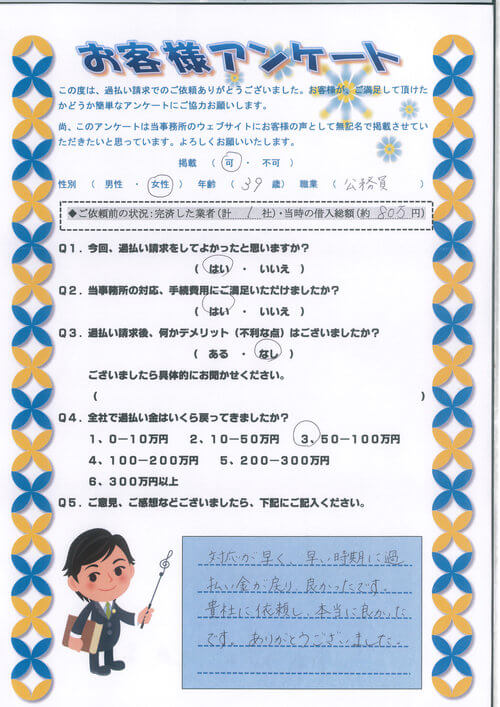 お客様アンケート
この度は、過払い請求でのご依頼ありがとうございました。お客様が、ご満足して頂けた
かどうか簡単なアンケートにご協力お願いします。
尚、このアンケートは当事務所のウェブサイトにお客様の声として無記名で掲載させてい
ただきたいと思っています。よろしくお願いいたします。
掲載 （ 可 ・ 不可 ）
性別 （ 男性 ・ 女性 ） 年齢 （ 39 歳） 職業 （ 公務員 ）
◆ご依頼前の状況：完済した業者（計 1 社）・当時の借入総額（約 80万 円）
Q1．今回、過払い請求をしてよかったと思いますか？
（ はい ・ いいえ ）
Q2．当事務所の対応、手続費用にご満足いただけましたか？
（ はい ・ いいえ ）
Q3．過払い請求後、何かデメリット（不利な点）はございましたか？
（ ある ・ なし ）
ございましたら具体的にお聞かせください。
（ ）
Q4．全社で過払い金はいくら戻ってきましたか？
1、0－10万円 2、10－50万円 3、50－100万円
4、100－200万円 5、200－300万円
6、300万円以上
Q5．ご意見、ご感想などございましたら、下記にご記入ください。
対応が早く、早い時期に過
払い金が戻り、良かったです。
貴社に依頼し、本当に良かった
です。ありがとうございました。